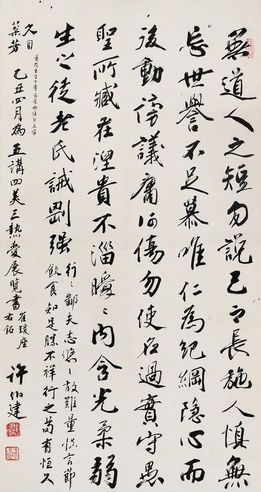 無道人之短勿說己之長施人慎無
忘世譽不足慕唯仁為紀綱隱心而
後動謗議庸何傷勿使名過實守愚
聖所臧在涅貴不淄曖曖內含光柔弱
生之徒老氏誡剛强
行行鄙夫志悠悠故難量慎言節
飲食知足勝不祥行之苟有恒久
久自
芬芳
乙丑四月為五講四美三熱愛展覽書
崔瑗座
右銘
許伯建